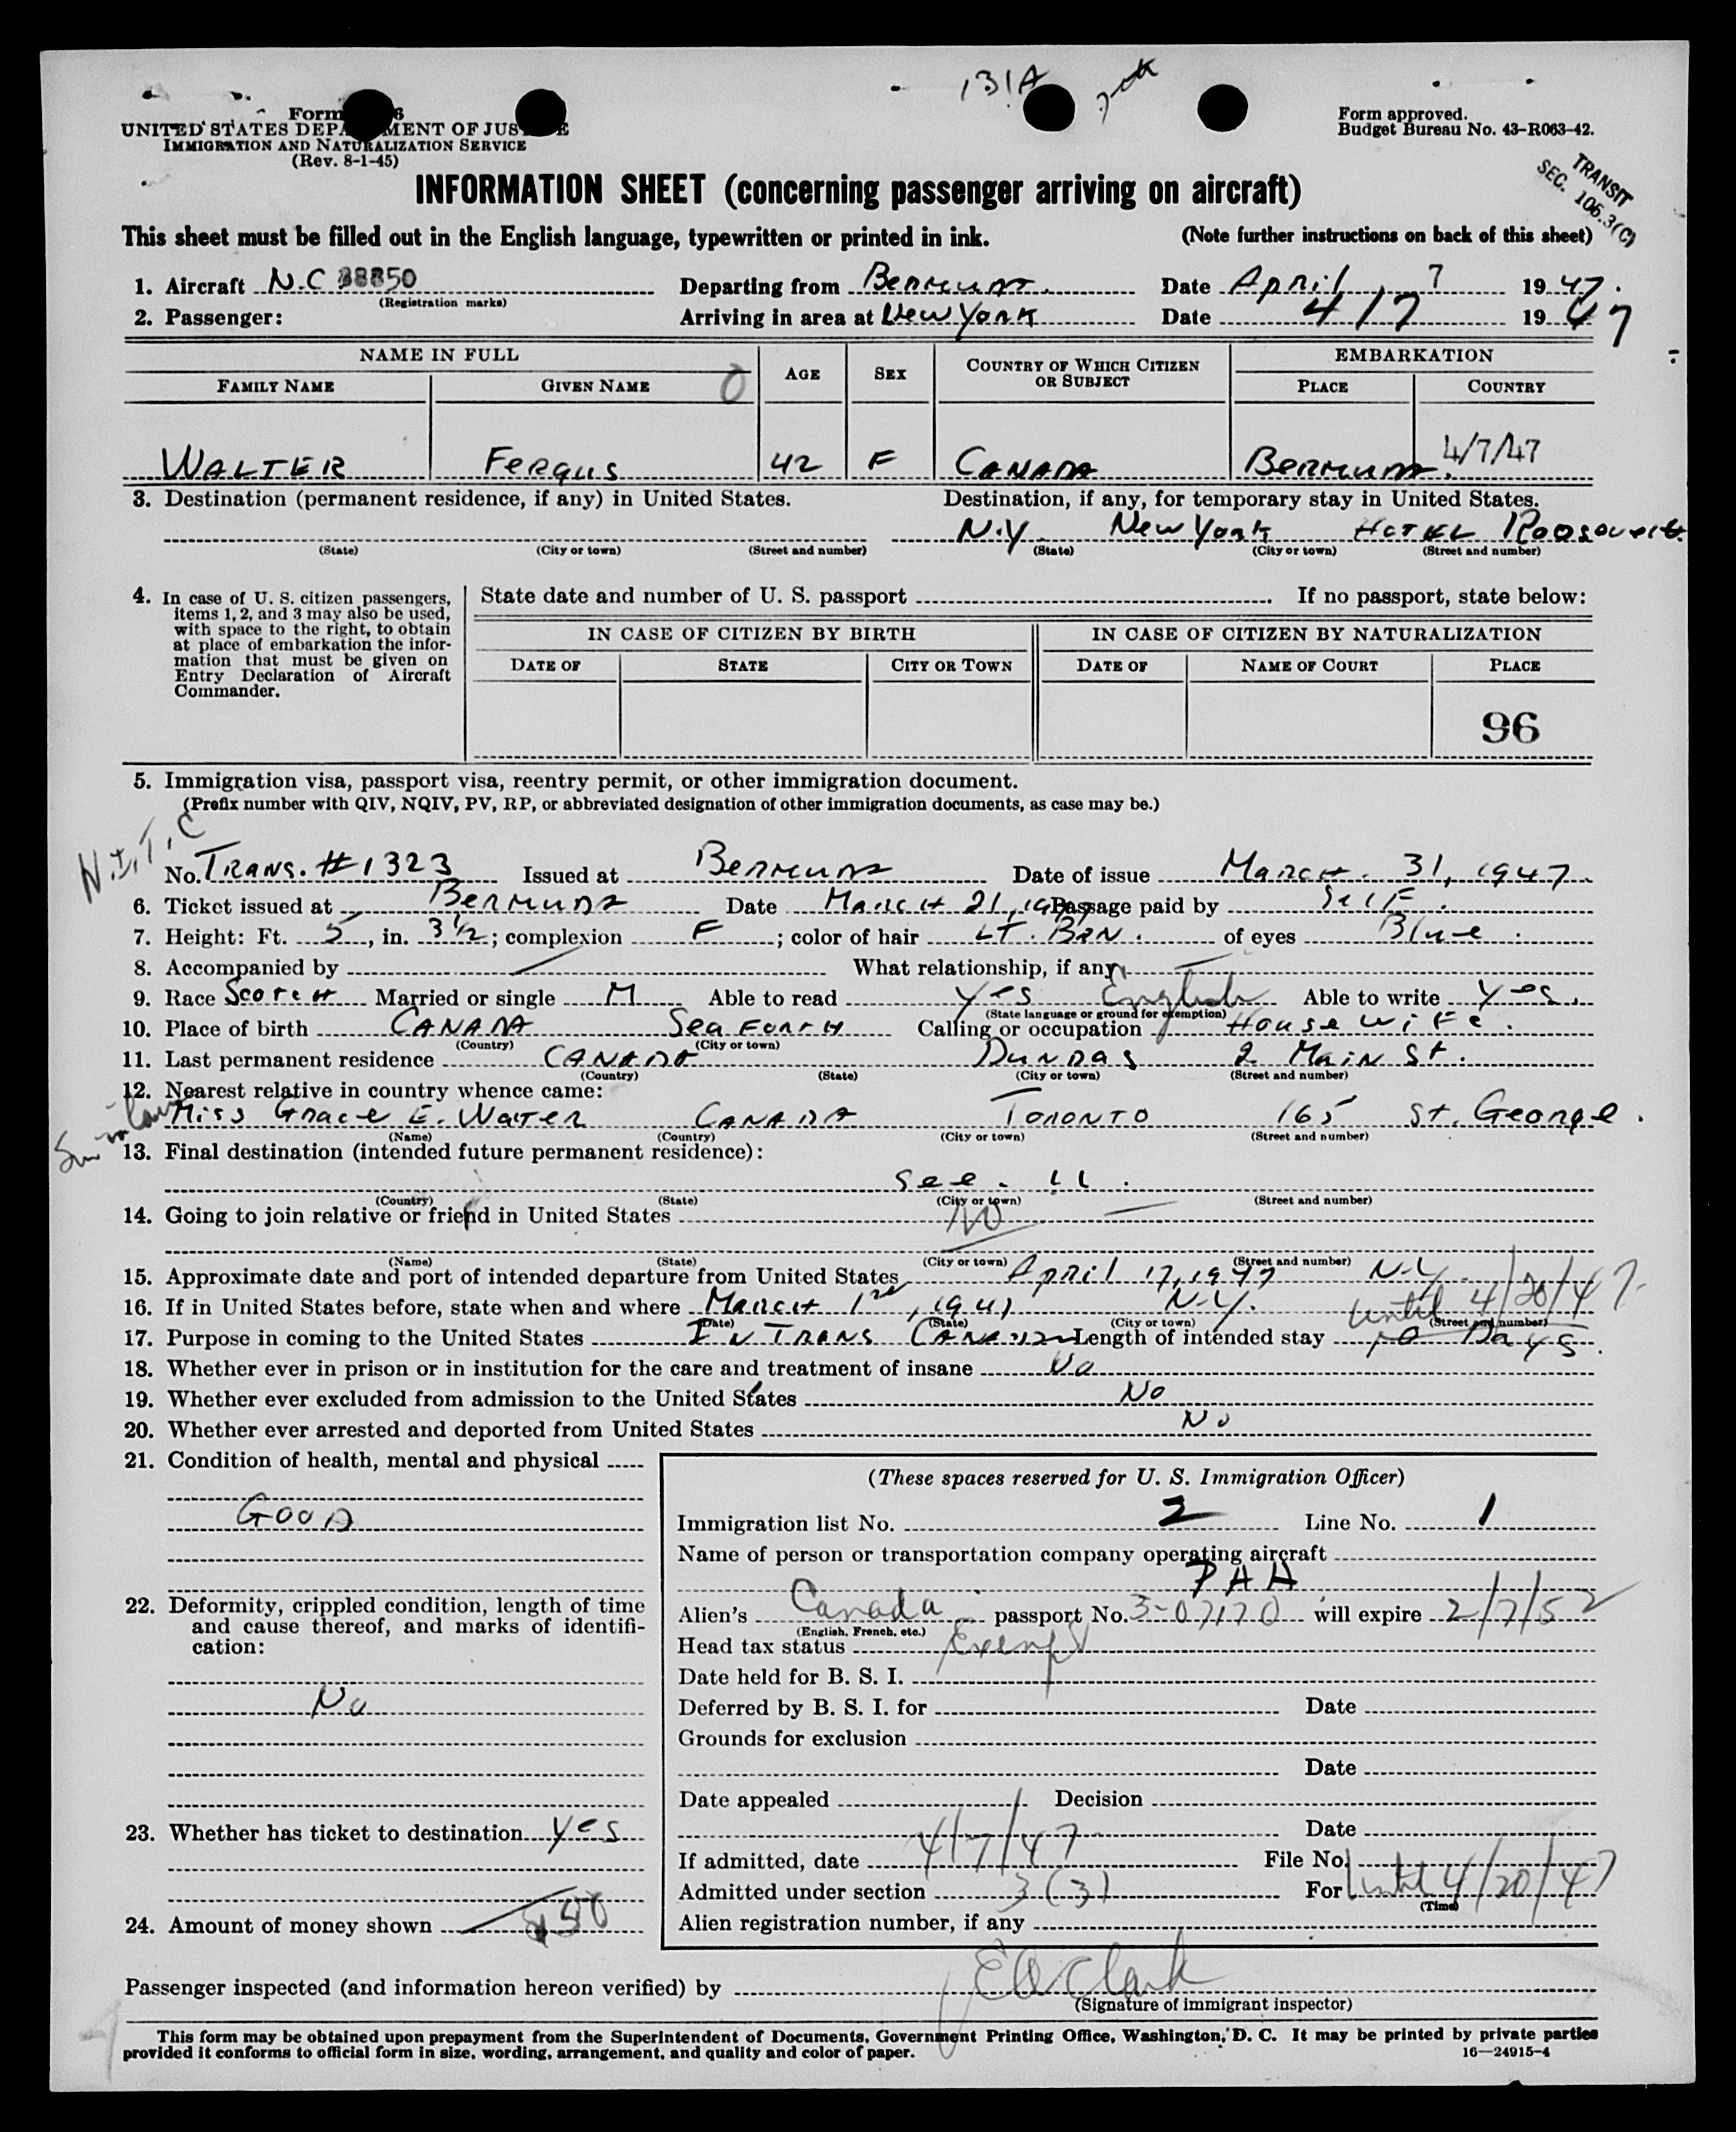 131A
Form
UNITED STATES DEPARTMENT OF JUSTICE
IMMIGRATION AND NATURALIZATION SERVICE
(Rev. 8-1-45)
Form approved.
Budget Bureau No. 43-R063-42.
TRANSIT
SEC. 106.3(C)
INFORMATION SHEET (concerning passenger arriving on aircraft)
This sheet must be filled out in the English language, typewritten or printed in ink. (Note further instructions on back of this sheet)
1. Aircraft N.C 88850 Departing from Bermuda. Date April 7 1947.
(Registration marks)
2. Passenger: Arriving in area at New York Date 4/7 1947
NAME IN FULL AGE SEX COUNTRY OF WHICH CITIZEN OR SUBJECT EMBARKATION
FAMILY NAME GIVEN NAME 0 PLACE COUNTRY
WALTER Fergus 42 F CANADA BERMUDA. 4/7/47
3. Destination (permanent residence, if any) in United States. Destination, if any, for temporary stay in United States.
N.Y New York HOTEL Roosevelt
(State) (City or town) (Street and number) (State) (City or town) (Street and number)
4. In case of U. S. citizen passengers, items 1, 2, and 3 may also be used, with space to the right, to obtain at place of embarkation the information that must be given on Entry Declaration of Aircraft Commander.
State date and number of U. S. passport If no passport, state below:
IN CASE OF CITIZEN BY BIRTH IN CASE OF CITIZEN BY NATURALIZATION
DATE OF STATE CITY OR TOWN DATE OF NAME OF COURT PLACE
96
5. Immigration visa, passport visa, reentry permit, or other immigration document.
(Prefix number with QIV, NQIV, PV, RP, or abbreviated designation of other immigration documents, as case may be.)
N.I.T.C
No. TRANS. #1323 Issued at Bermuda Date of issue March. 31, 1947.
6. Ticket issued at Bermuda Date March 21, 1947 Passage paid by Self.
7. Height: Ft. 5, in. 3½; complexion F; color of hair LT. BRN. of eyes Blue.
8. Accompanied by — What relationship, if any —
9. Race Scotch Married or single M Able to read yes English Able to write yes.
(State language or ground for exemption)
10. Place of birth CANADA Seaforth Calling or occupation Housewife.
(Country) (City or town)
11. Last permanent residence CANADA Dundas 2 Main St.
(Country) (State) (City or town) (Street and number)
12. Nearest relative in country whence came:
Miss Grace E. Walter CANADA TORONTO 165 St. George.
(Name) (Country) (City or town) (Street and number)
13. Final destination (intended future permanent residence):
See. 11.
(Country) (State) (City or town) (Street and number)
14. Going to join relative or friend in United States NO —
(Name) (State) (City or town) (Street and number)
15. Approximate date and port of intended departure from United States April 17, 1947 N.Y.
16. If in United States before, state when and where March 1st, 1947 N.Y. until 4/20/47
(Date) (State) (City or town) (Street and number)
17. Purpose in coming to the United States IN TRANS CANADA Length of intended stay 10 Days.
18. Whether ever in prison or in institution for the care and treatment of insane No
19. Whether ever excluded from admission to the United States No
20. Whether ever arrested and deported from United States No
21. Condition of health, mental and physical
GOOD
22. Deformity, crippled condition, length of time and cause thereof, and marks of identification:
No
23. Whether has ticket to destination Yes
24. Amount of money shown $50
(These spaces reserved for U. S. Immigration Officer)
Immigration list No. 2 Line No. 1
Name of person or transportation company operating aircraft
PAA
Alien's Canada passport No. 3-07170 will expire 2/7/52
(English, French, etc.)
Head tax status Exempt
Date held for B. S. I.
Deferred by B. S. I. for Date
Grounds for exclusion
Date
Date appealed Decision
Date
If admitted, date 4/7/47 File No.
Admitted under section 3(3) For until 4/20/47
(Time)
Alien registration number, if any
Passenger inspected (and information hereon verified) by E Clark
(Signature of immigrant inspector)
This form may be obtained upon prepayment from the Superintendent of Documents, Government Printing Office, Washington, D. C. It may be printed by private parties
provided it conforms to official form in size, wording, arrangement, and quality and color of paper. 16—24915-4